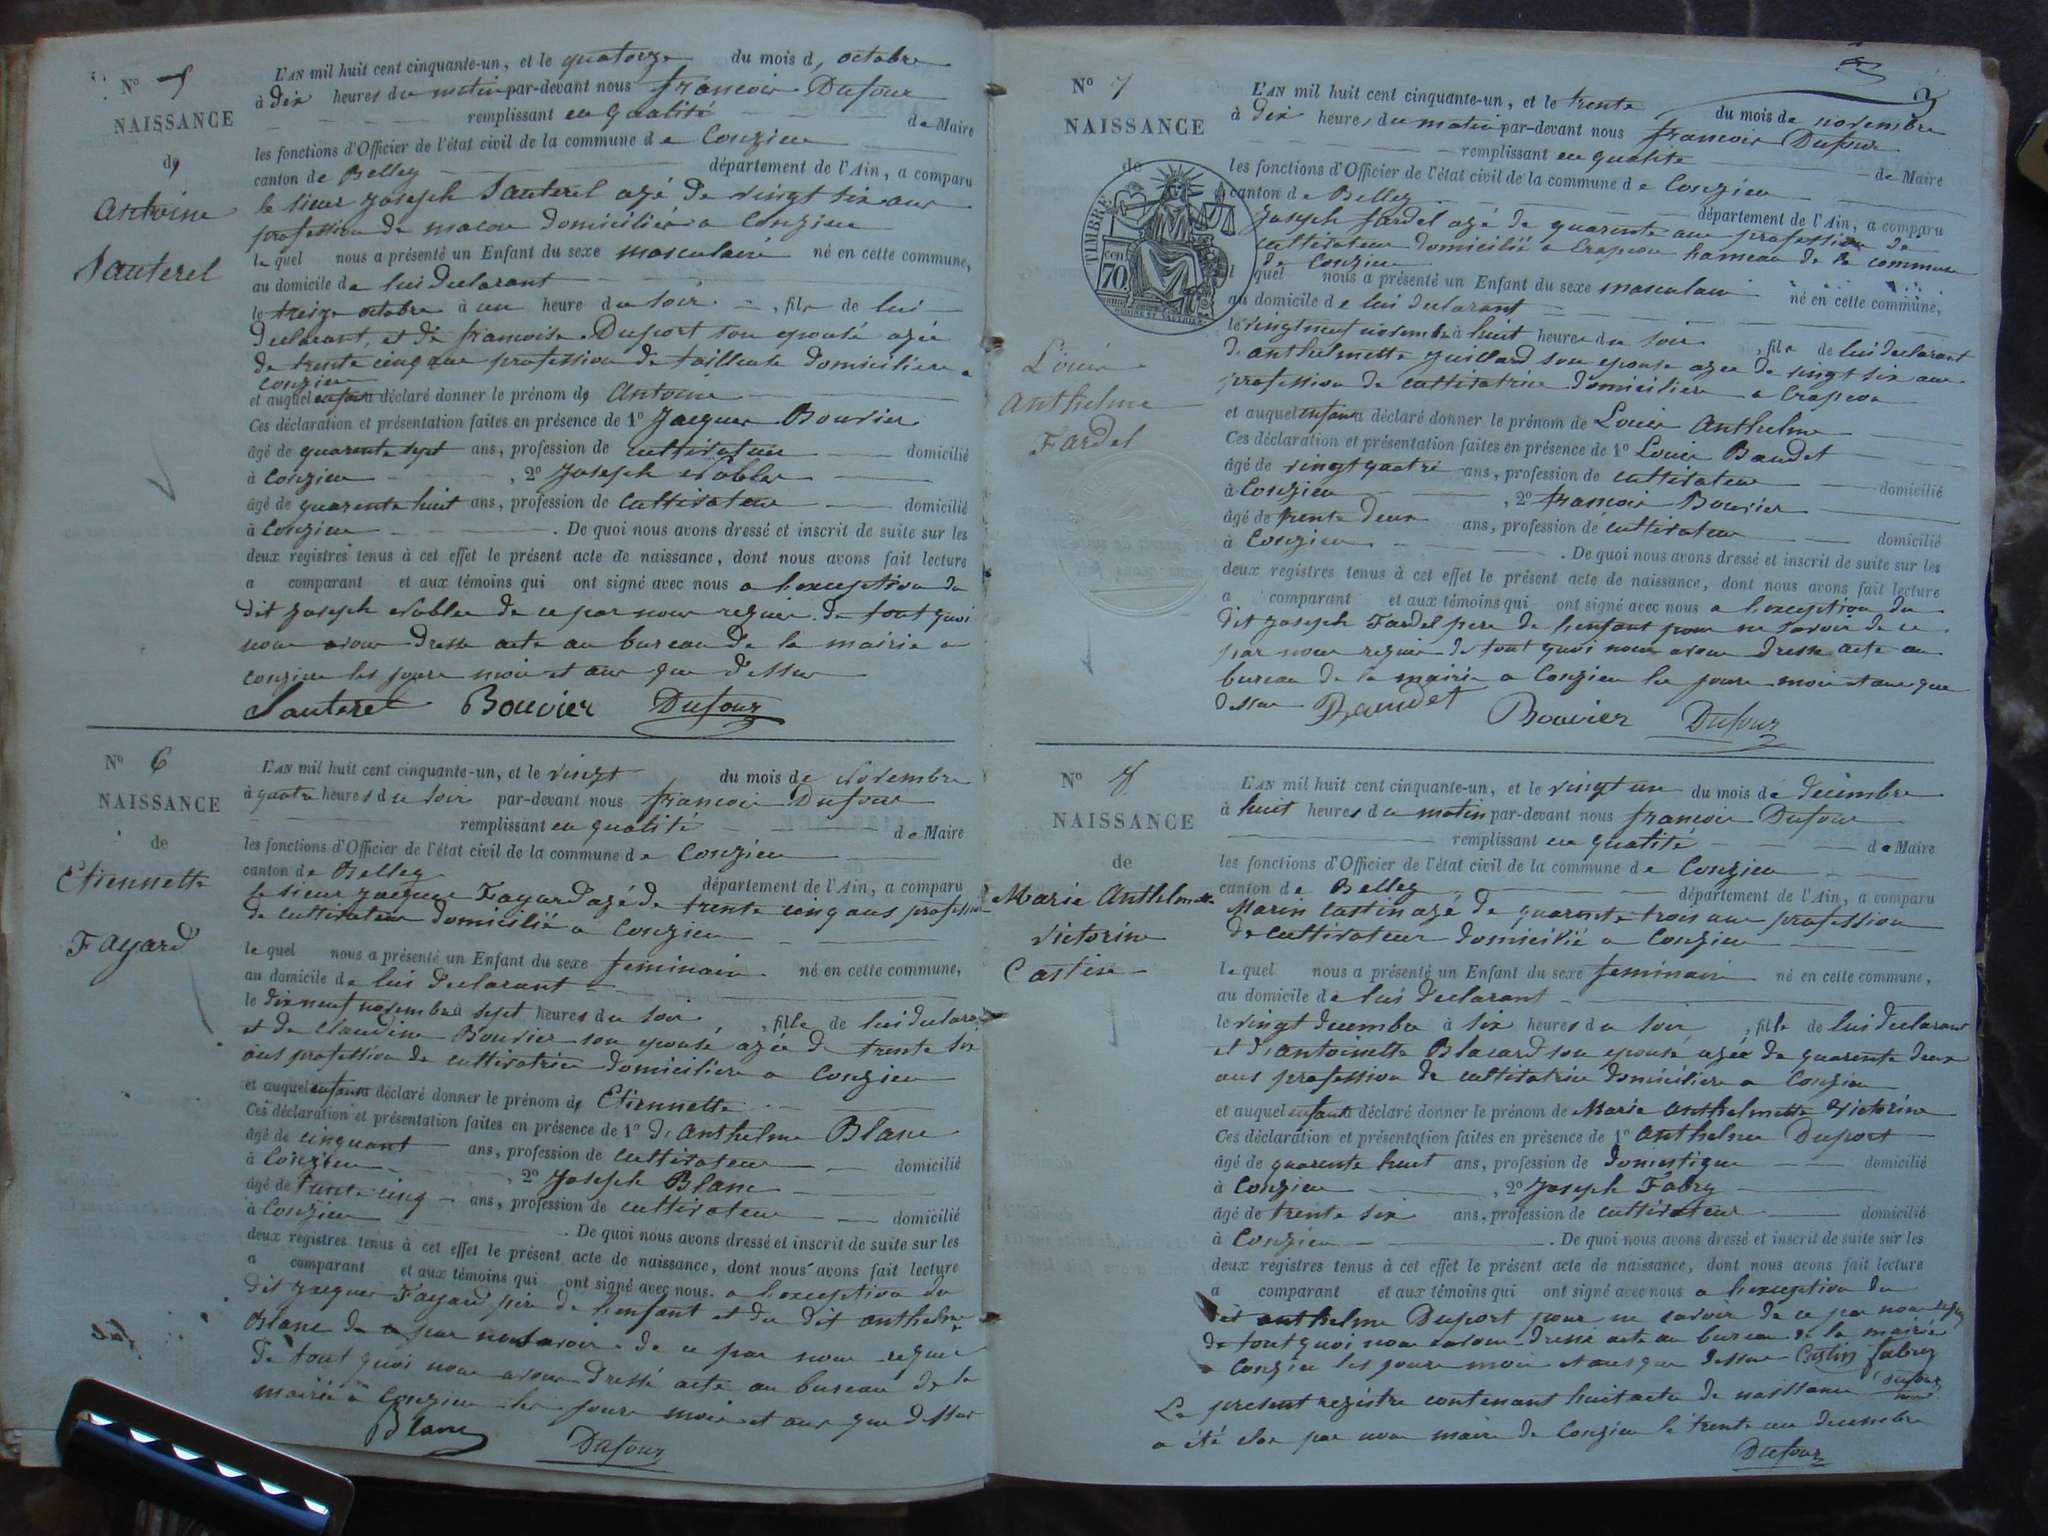 N° 5
NAISSANCE
de
Antoine
Sauterel
L'AN mil huit cent cinquante-un, et le quatorze du mois d, octobre
à dix heures du matin par-devant nous françois Dufour
remplissant en qualité de Maire
les fonctions d'Officier de l'état civil de la commune de Conzieu
canton de Belley département de l'Ain, a comparu
le sieur joseph Sauterel agé de vingt six ans
profession de macon domicilié a Conzieu
le quel nous a présenté un Enfant du sexe masculain né en cette commune,
au domicile de lui declarant
le treize octobre à un heure du soir, fils de lui
declarant, et de francoise Duport son epouse agée
de trente cinq ans profession de tailleuse domiciliere a
conzieu
et auquel enfant a déclaré donner le prénom de Antoine
Ces déclaration et présentation faites en présence de 1° Jacques Bouvier
âgé de quarente sept ans, profession de cultivateur domicilié
à Conzieu, 2° Joseph
âgé de quarente huit ans, profession de Cultivateur domicilié
à Conzieu. De quoi nous avons dressé et inscrit de suite sur les
deux registres tenus à cet effet le présent acte de naissance, dont nous avons fait lecture
a comparant et aux témoins qui ont signé avec nous a l'exception du
dit joseph de ce par nous requis de tout quoi
nous avons dressé acte au bureau de la mairie a
conzieu les jours mois et ans que dessus
Sauterel Bouvier Dufour
N° 6
NAISSANCE
de
Etiennette
Fayard
L'AN mil huit cent cinquante-un, et le vingt du mois de Novembre
à quatre heures du soir par-devant nous françois Dufour
remplissant en qualité de Maire
les fonctions d'Officier de l'état civil de la commune de Conzieu
canton de Belley département de l'Ain, a comparu
le sieur jacques Fayard agé de trente cinq ans profession
de cultivateur domicilié a Conzieu
le quel nous a présenté un Enfant du sexe feminain né en cette commune,
au domicile de lui declarant
le dix neuf novembre à sept heures du soir, fille de lui declarant
et de claudine Bouvier son epouse agée de trente six
ans profession de cultivatrice domiciliere a Conzieu
et auquel enfant a déclaré donner le prénom de Etiennette
Ces déclaration et présentation faites en présence de 1° d'Anthelme Blanc
âgé de cinquant ans, profession de cultivateur domicilié
à Conzieu, 2° Joseph Blanc
âgé de trente cinq ans, profession de cultivateur domicilié
à Conzieu. De quoi nous avons dressé et inscrit de suite sur les
deux registres tenus à cet effet le présent acte de naissance, dont nous avons fait lecture
a comparant et aux témoins qui ont signé avec nous a l'exception du
dit jacques Fayard père de l'enfant et du dit anthelme
Blanc de savoir de ce par nous requis
de tout quoi nous avons dressé acte au bureau de la
mairie a Conzieu les jours mois et ans que dessus
Blanc Dufour
N° 7
NAISSANCE
de
TIMBRE
70
Louis
Anthelme
Fardel
L'AN mil huit cent cinquante-un, et le trente du mois de novembre
à dix heures du matin par-devant nous françois Dufour
remplissant en qualité de Maire
les fonctions d'Officier de l'état civil de la commune de Conzieu
canton de Belley département de l'Ain, a comparu
Joseph fardel agé de quarente ans profession de
cultivateur domicilié a Crapeou hameau de la commune
de Conzieu
l quel nous a présenté un Enfant du sexe masculain né en cette commune,
au domicile de lui declarant
le vingt neuf novembre à huit heures du soir, fils de lui declarant
d'anthelmette guillard son epouse agée de vingt six ans
profession de cultivatrice domiciliere a Crapeou
et auquel enfant a déclaré donner le prénom de Louis Anthelme
Ces déclaration et présentation faites en présence de 1° Louis Baudet
âgé de vingt quatre ans, profession de cultivateur domicilié
à Conzieu, 2° françois Bouvier
âgé de trente deux ans, profession de cultivateur domicilié
à Conzieu. De quoi nous avons dressé et inscrit de suite sur les
deux registres tenus à cet effet le présent acte de naissance, dont nous avons fait lecture
a comparant et aux témoins qui ont signé avec nous a l'exception du
dit joseph Fardel pere de l'enfant pour ne savoir de ce
par nous requis de tout quoi nous avons dressé acte au
bureau de la mairie a Conzieu les jours mois et ans que
dessus Baudet Bouvier Dufour
N° 8
NAISSANCE
de
Marie Anthelmette
Victorine
Castin
L'AN mil huit cent cinquante-un, et le vingt un du mois de décembre
à huit heures du matin par-devant nous françois Dufour
remplissant en qualité de Maire
les fonctions d'Officier de l'état civil de la commune de Conzieu
canton de Belley département de l'Ain, a comparu
Marin Castin agé de quarente trois ans profession
de cultivateur domicilié a Conzieu
le quel nous a présenté un Enfant du sexe feminain né en cette commune,
au domicile de lui declarant
le vingt decembre à six heures du soir, fille de lui declarant
et d'antoinette Blacard son epouse agée de quarente deux
ans profession de cultivatrice domiciliere a Conzieu
et auquel enfant a déclaré donner le prénom de Marie anthelmette Victorine
Ces déclaration et présentation faites en présence de 1° anthelme Duport
âgé de quarente huit ans, profession de domestique domicilié
à Conzieu, 2° Joseph Fabry
âgé de trente six ans, profession de cultivateur domicilié
à Conzieu. De quoi nous avons dressé et inscrit de suite sur les
deux registres tenus à cet effet le présent acte de naissance, dont nous avons fait lecture
a comparant et aux témoins qui ont signé avec nous a l'exception du
dit anthelme Duport pour ne savoir de ce par nous requis
de tout quoi nous avons dressé acte au bureau de la mairie
a Conzieu les jours mois et ans que dessus Castin fabry
Dufour
Le present registre contenant huit actes de naissance
a été clos par nous maire de Conzieu le trente un decembre
Dufour